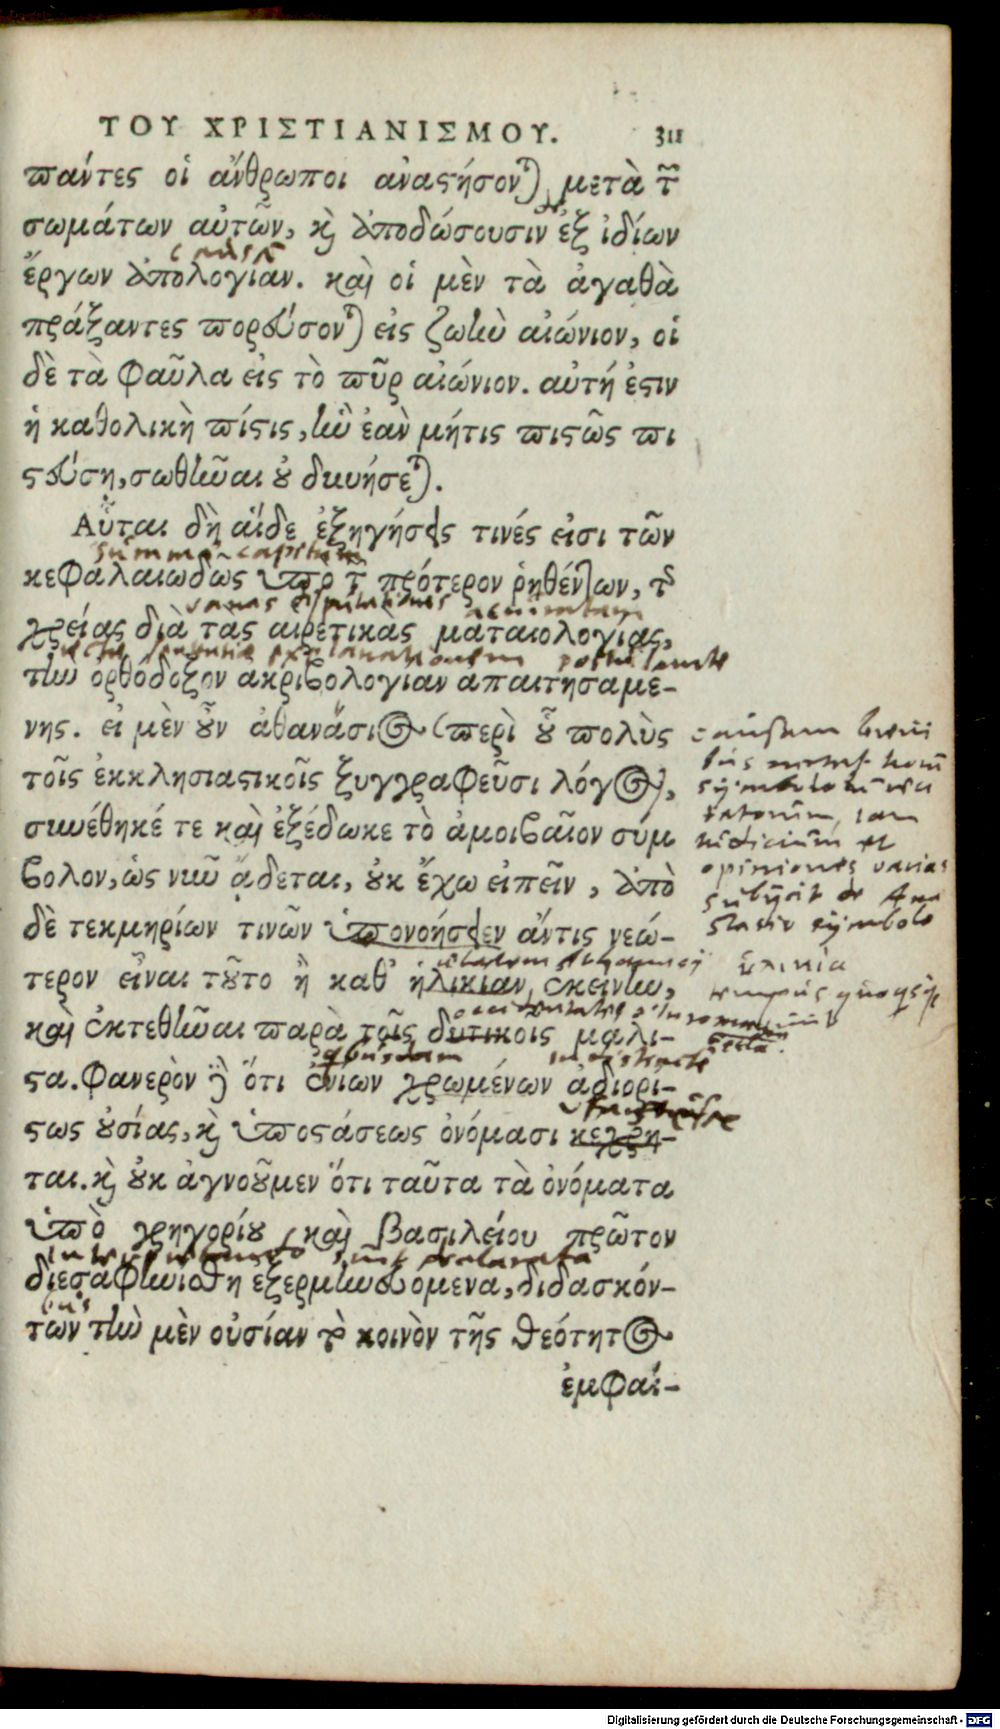 ΤΟΥ ΧΡΙΣΤΙΑΝΙΣΜΟΥ. 311
πάντες οἱ ἄνθρωποι ἀναστήσονται μετὰ τῶν
σωμάτων αὐτῶν, καὶ ἀποδώσουσιν ἐξ ἰδίων
ἔργων ἀπολογίαν. καὶ οἱ μὲν τὰ ἀγαθὰ
πράξαντες πορεύσονται εἰς ζωὴν αἰώνιον, οἱ
δὲ τὰ φαῦλα εἰς τὸ πῦρ αἰώνιον. αὐτή ἐστιν
ἡ καθολικὴ πίστις, ἣν ἐὰν μήτις πιστῶς πι
στεύση, σωθῆναι οὐ δυνήσεται.
Αὗται δὴ αἵδε ἐξηγήσεις τινές εἰσι τῶν
summa capitum
κεφαλαιωδῶς ὑπὲρ τῶν πρότερον ῥηθέντων, τῆς
vanas disputationes
χρείας διὰ τὰς αἱρετικὰς ματαιολογίας,
explanationem postulante
τὴν ὀρθόδοξον ἀκριβολογίαν ἀπαιτησαμέ-
νης. εἰ μὲν οὖν ἀθανάσιος (περὶ οὗ πολὺς
τοῖς ἐκκλησιαστικοῖς ξυγγραφεῦσι λόγος),
συνέθηκέ τε καὶ ἐξέδωκε τὸ ἀμοιβαῖον σύμ
βολον, ὡς νῦν ᾄδεται, οὐκ ἔχω εἰπεῖν, ἀπὸ
δὲ τεκμηρίων τινῶν ὑπονοήσειεν ἄντις νεώ-
τερον εἶναι τοῦτο ἢ καθ' ἡλικίαν ἐκείνην,
καὶ ἐκτεθῆναι παρὰ τοῖς δυτικοῖς μάλι-
quibusdam
στα. φανερὸν γὰρ ὅτι ἐνίων χρωμένων ἀδιορί-
στως οὐσίας, καὶ ὑποστάσεως ὀνόμασι κεχρη-
ται. καὶ οὐκ ἀγνοοῦμεν ὅτι ταῦτα τὰ ὀνόματα
ὑπὸ γρηγορίου καὶ βασιλείου πρῶτον
sint declarata
διεσαφηνίσθη ἐξερμηνευόμενα, διδασκόν-
των τὴν μὲν οὐσίαν τὸ κοινὸν τῆς θεότητος
ἐμφαί-
symbolorum
iudicium et
opiniones varias
subijcit de
symbolo
ἡλικία
tempus quoque
Digitalisierung gefördert durch die Deutsche Forschungsgemeinschaft - DFG